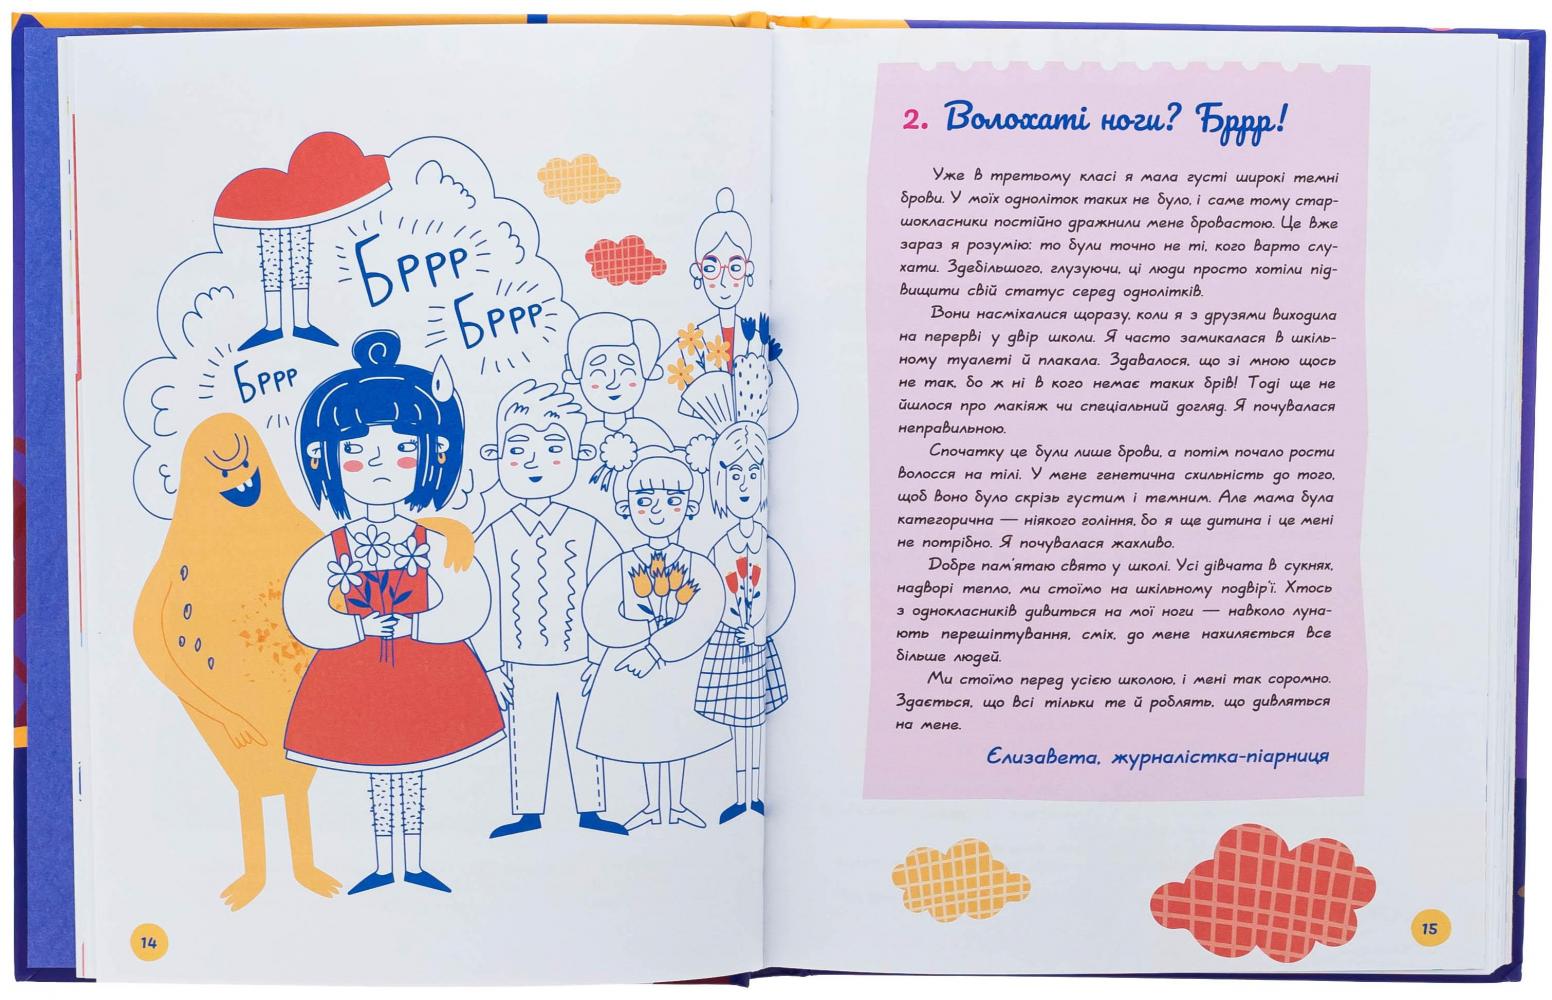 Бррр
Бррр
Бррр
14
2. Волохаті ноги? Бррр!
Уже в третьому класі я мала густі широкі темні
брови. У моїх однолітокˮ таких не було, і саме тому стар-
шокласники постійно дражнили мене бровастою. Це вже
зараз я розумію: то були точно не ті, кого варто слу-
хати. Здебільшого, глузуючи, ці люди просто хотіли під-
вищити свій статус серед однолітків.
Вони насміхалися щоразу, коли я з друзями виходила
на перерві у двір школи. Я часто замикалася в шкіль-
ному туалеті й плакала. Здавалося, що зі мною щось
не так, бо ж ні в кого немає таких брів! Тоді ще не
йшлося про макіяж чи спеціальний догляд. Я почувалася
неправильною.
Спочатку це були лише брови, а потім почало рости
волосся на тілі. У мене генетична схильність до того,
щоб воно було скрізь густим і темним. Але мама була
категорична — ніякого гоління, бо я ще дитина і це мені
не потрібно. Я почувалася жахливо.
Добре пам'ятаю свято у школі. Усі дівчата в сукнях,
надворі тепло, ми стоїмо на шкільному подвір'ї. Хтось
з однокласників дивиться на мої ноги — навколо луна-
ють перешіптування, сміх, до мене нахиляється все
більше людей.
Ми стоїмо перед усією школою, і мені так соромно.
Здається, що всі тільки те й роблять, що дивляться
на мене.
Єлизавета, журналістка-піарниця
15